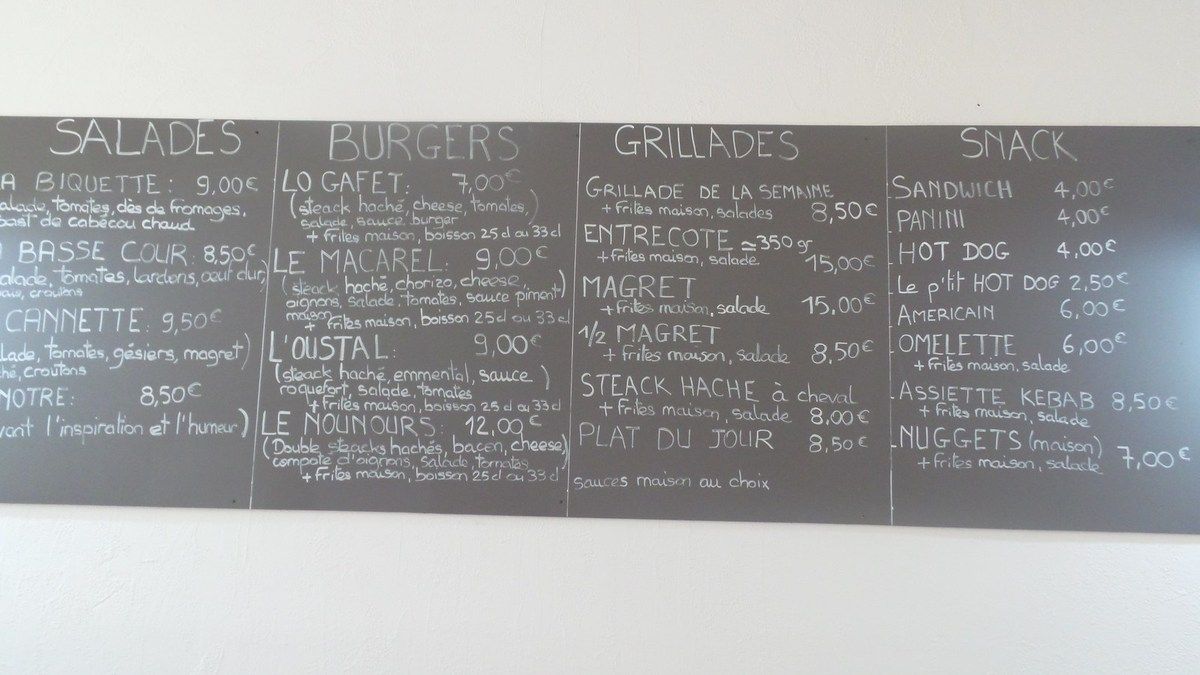 SALADES
A BIQUETTE: 9,00€
alade, tomates, dès de fromages,
oast de cabécou chaud
BASSE COUR: 8,50€
alade, tomates, lardons, oeuf dur,
croutons
CANNETTE: 9,50€
lade, tomates, gésiers, magret)
ché, croutons
NOTRE: 8,50€
vant l'inspiration et l'humeur)
BURGERS
LO GAFET: 7,00€
(steack haché, cheese, tomates,)
salade, sauce burger
+ frites maison, boisson 25 cl ou 33 cl
LE MACAREL: 9,00€
(steack haché, chorizo, cheese,)
oignons, salade, tomates, sauce piment
maison
+ frites maison, boisson 25 cl ou 33 cl
L'OUSTAL: 9,00€
(steack haché, emmental, sauce)
roquefort, salade, tomates
+ frites maison, boisson 25 cl ou 33 cl
LE NOUNOURS: 12,00€
(Double steacks hachés, bacon, cheese,)
compote d'oignons, salade, tomates
+ frites maison, boisson 25 cl ou 33 cl
GRILLADES
GRILLADE DE LA SEMAINE
+ frites maison, salades 8,50€
ENTRECOTE ≃350 gr
+ frites maison, salade 15,00€
MAGRET
+ frites maison, salade 15,00€
1/2 MAGRET
+ frites maison, salade 8,50€
STEACK HACHE à cheval
+ frites maison, salade 8,00€
PLAT DU JOUR 8,50€
sauces maison au choix
SNACK
SANDWICH 4,00€
PANINI 4,00€
HOT DOG 4,00€
Le p'tit HOT DOG 2,50€
AMERICAIN 6,00€
OMELETTE 6,00€
+ frites maison, salade
ASSIETTE KEBAB 8,50€
+ frites maison, salade
NUGGETS (maison)
+ frites maison, salade 7,00€